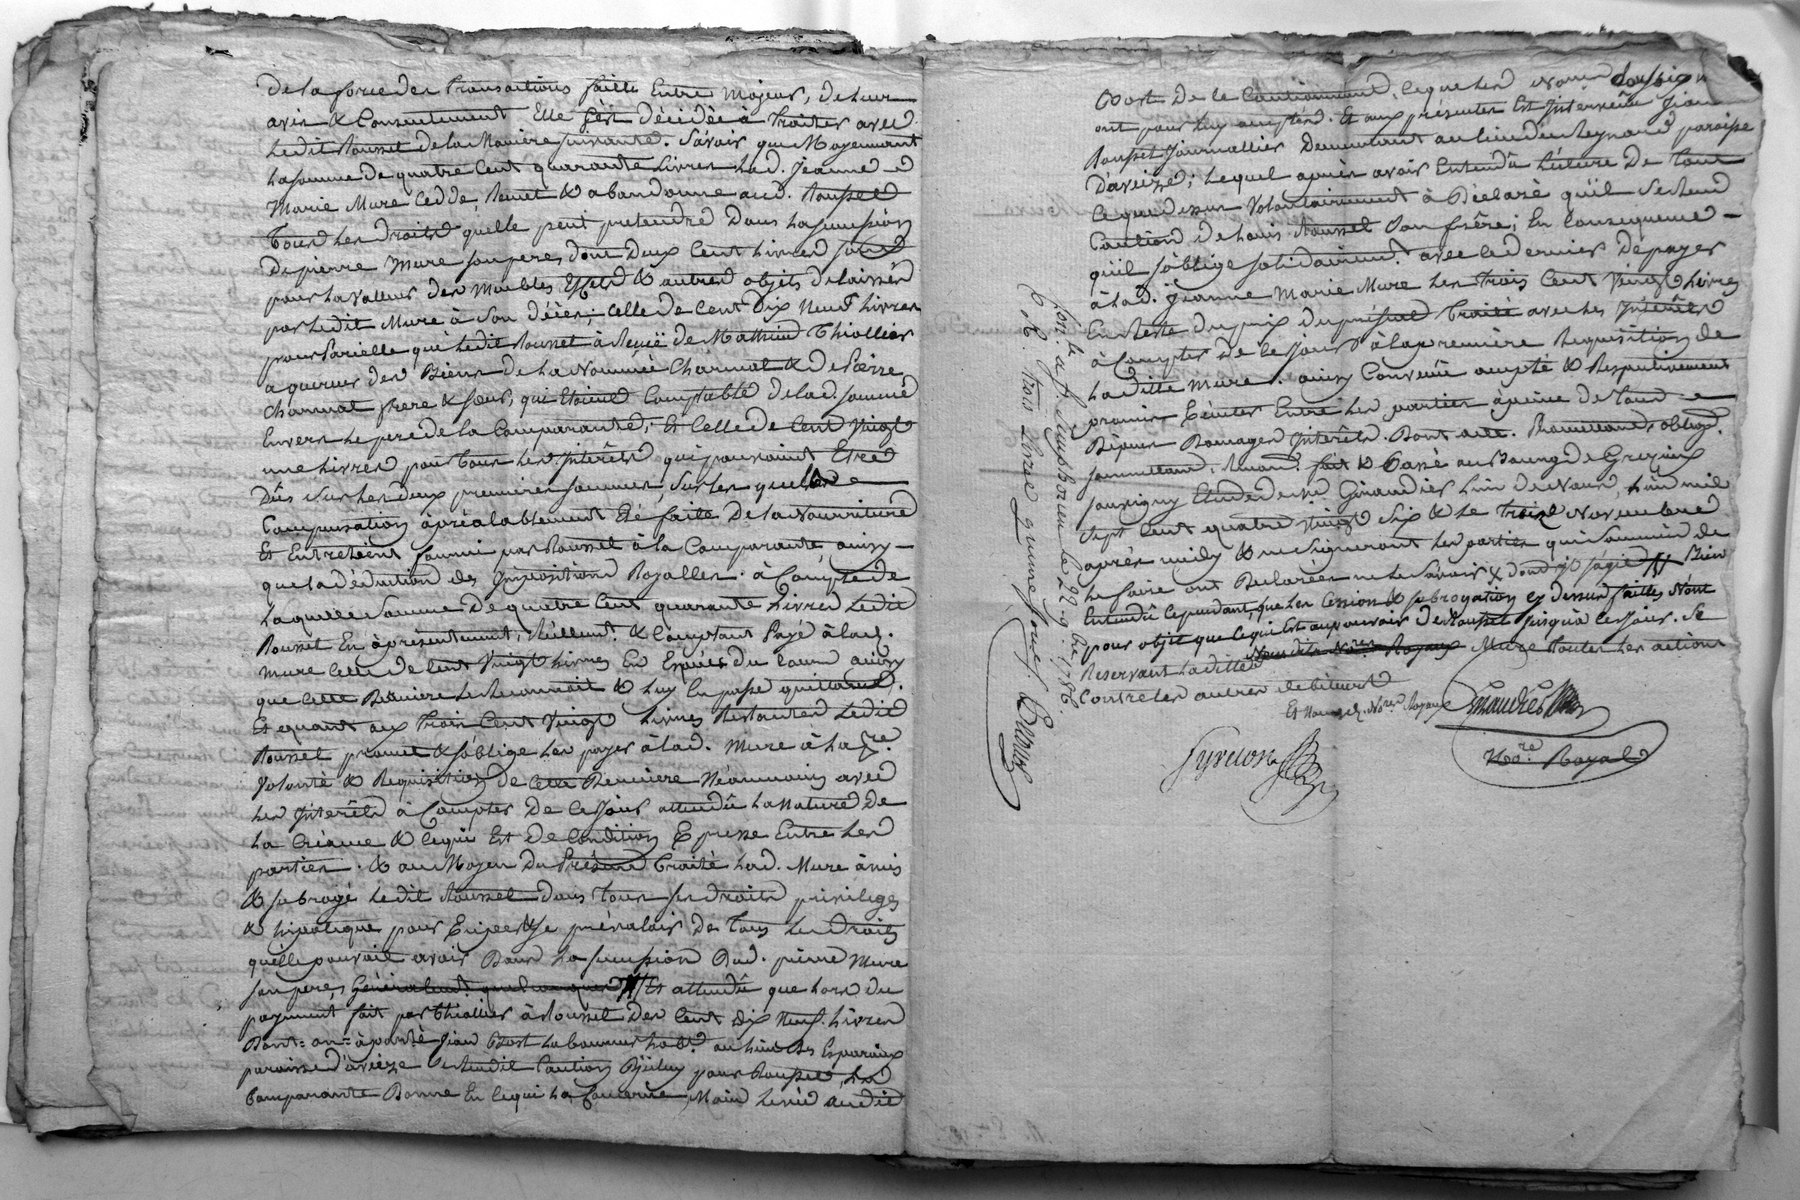 de la force des transactions faitte Entre majeurs, de leur
avis & Consentement Elle s'est décidée à traiter avec
Ledit Rousset de la Manière suivante. Savoir que Moyennant
La somme de quatre Cent quarante Livres Lad. Jeanne
Marie Mure Cedde, Remet & abandonne aud. Rousset
tous Les droits qu'elle peut pretendre Dans La succession
De pierre Mure son pere, dont Deux Cent Livres sont
pour La valleur des Meubles Effets & autres objets delaissés
par Ledit Mure à son décès; Celle de Cent Dix Neuf Livres
pour Parielle que Ledit Rousset à Reçüe de Mathieu Thiollier
aquereur des Biens de La Nommée Charmat & de Pierre
Charmat frere & sœur, qui Etoient Comptable de lad. somme
Envers Le pere de la Comparante; Et Celle de Cent Vingt
une Livres pour tous Les Intérêts qui pouvoient Etre
Dûs sur Les deux premieres sommes, sur Les quelles
Compensation àpréalablement Eté faite De la Nourriture
Et Entretient fourni par Rousset à la Comparante ainsy
que la déduction des Impositions Royalles. à Compte de
Laquelle somme De quatre Cent quarante Livres Ledit
Rousset En àprésentement, Réellemt. & Comptant Payé à lad.
Mure Celle de Cent Vingt Livres En Espèces du Cours ainsy
que Cette Derniere Le Reconnoit & Luy En passe quittance.
Et quant aux Trois Cent Vingt Livres Restantes Ledit
Rousset promet & s'oblige Les payer à lad. Mure à La Pre.
Volonté & Requisition de Cette Derniere Néanmoins avec
Les Intérêts à Compter De Ce Jour attendû La Nature De
La Créance & Ce qui Est De Condition Expresse Entre Les
parties. & au Moyen Du Présent traité Lad. Mure àmis
& subrogé Ledit Rousset Dans Tous ses Droits privileges
& hipotèque pour Exiger & se prévaloir De Tous Les Droits
qu'elle pouvoit avoir Dans La succession Dud. pierre Mure
son pere, Généralemt. quelconques // Et attendû que Lors du
payement fait par Thiollier à Rousset Des Cent Dix Neuf Livres
Dont-on-àparlé Jean Cost Laboureur habt. au Lieu des Esparaux
paroisse d'avieze se Rendit Caution D'iceluy pour Rousset, La
Comparante Donne En Ce qui La Concerne, Main Levée audit
Cost De Le Cautionnemt. Ce que Les Nores soussignés
ont pour Luy accepté. Et aux présentes Est Intervenû Jean
Rousset Journallier Demeurant au Lieu des Reynard paroisse
D'avieze; Lequel après avoir Entendû Lecture De Tout
Ce que dessus Volontairement à Déclaré qu'il se Rend
Caution De Louis Rousset son frère; En Consequence
qu'il s'oblige solidairemt. avec Ce dernier De payer
à Lad. Jeanne Marie Mure Les Trois Cent Vingt Livres
En Reste du prix du présent Traité avec Les Intérêts
à Compter De Ce Jour à La première Requisition de
La ditte Mure. ainsy Convenû accepté & Respectivement
promis Exécuter Entre Les parties àpeine de Tous
Dépens Domages Intérêts. Dont acte. Promettant, obligt.
soumettant, Renonct. fait & Passé au Bourg De Grezieu
souvigny Etude de Me. Giraudier L'un de Nous, L'an mil
sept Cent quatre Vingt Six & Le Treize Novembre
après midy & ne signeront Les parties qui sommées de
Le faire ont Declarées ne Le Savoir & dont s'agit // Bien
Entendû Cependant, que Les Cession & subrogation cy dessus faittes N'ont
pour objet que Ce qui Est au pouvoir De Rousset jusqu'à Ce Jour. Se
Reservant Laditte Nous dits Nores Royaux Mure Toutes Les actions
Contre Les autres debiteurs
Et Nousd. Nores Royaux Giraudier
Nore. Royal
Peyretton
Con. le. a St. Simphorien le 22. 9bre. 1786
r. trois livres quinze sols.